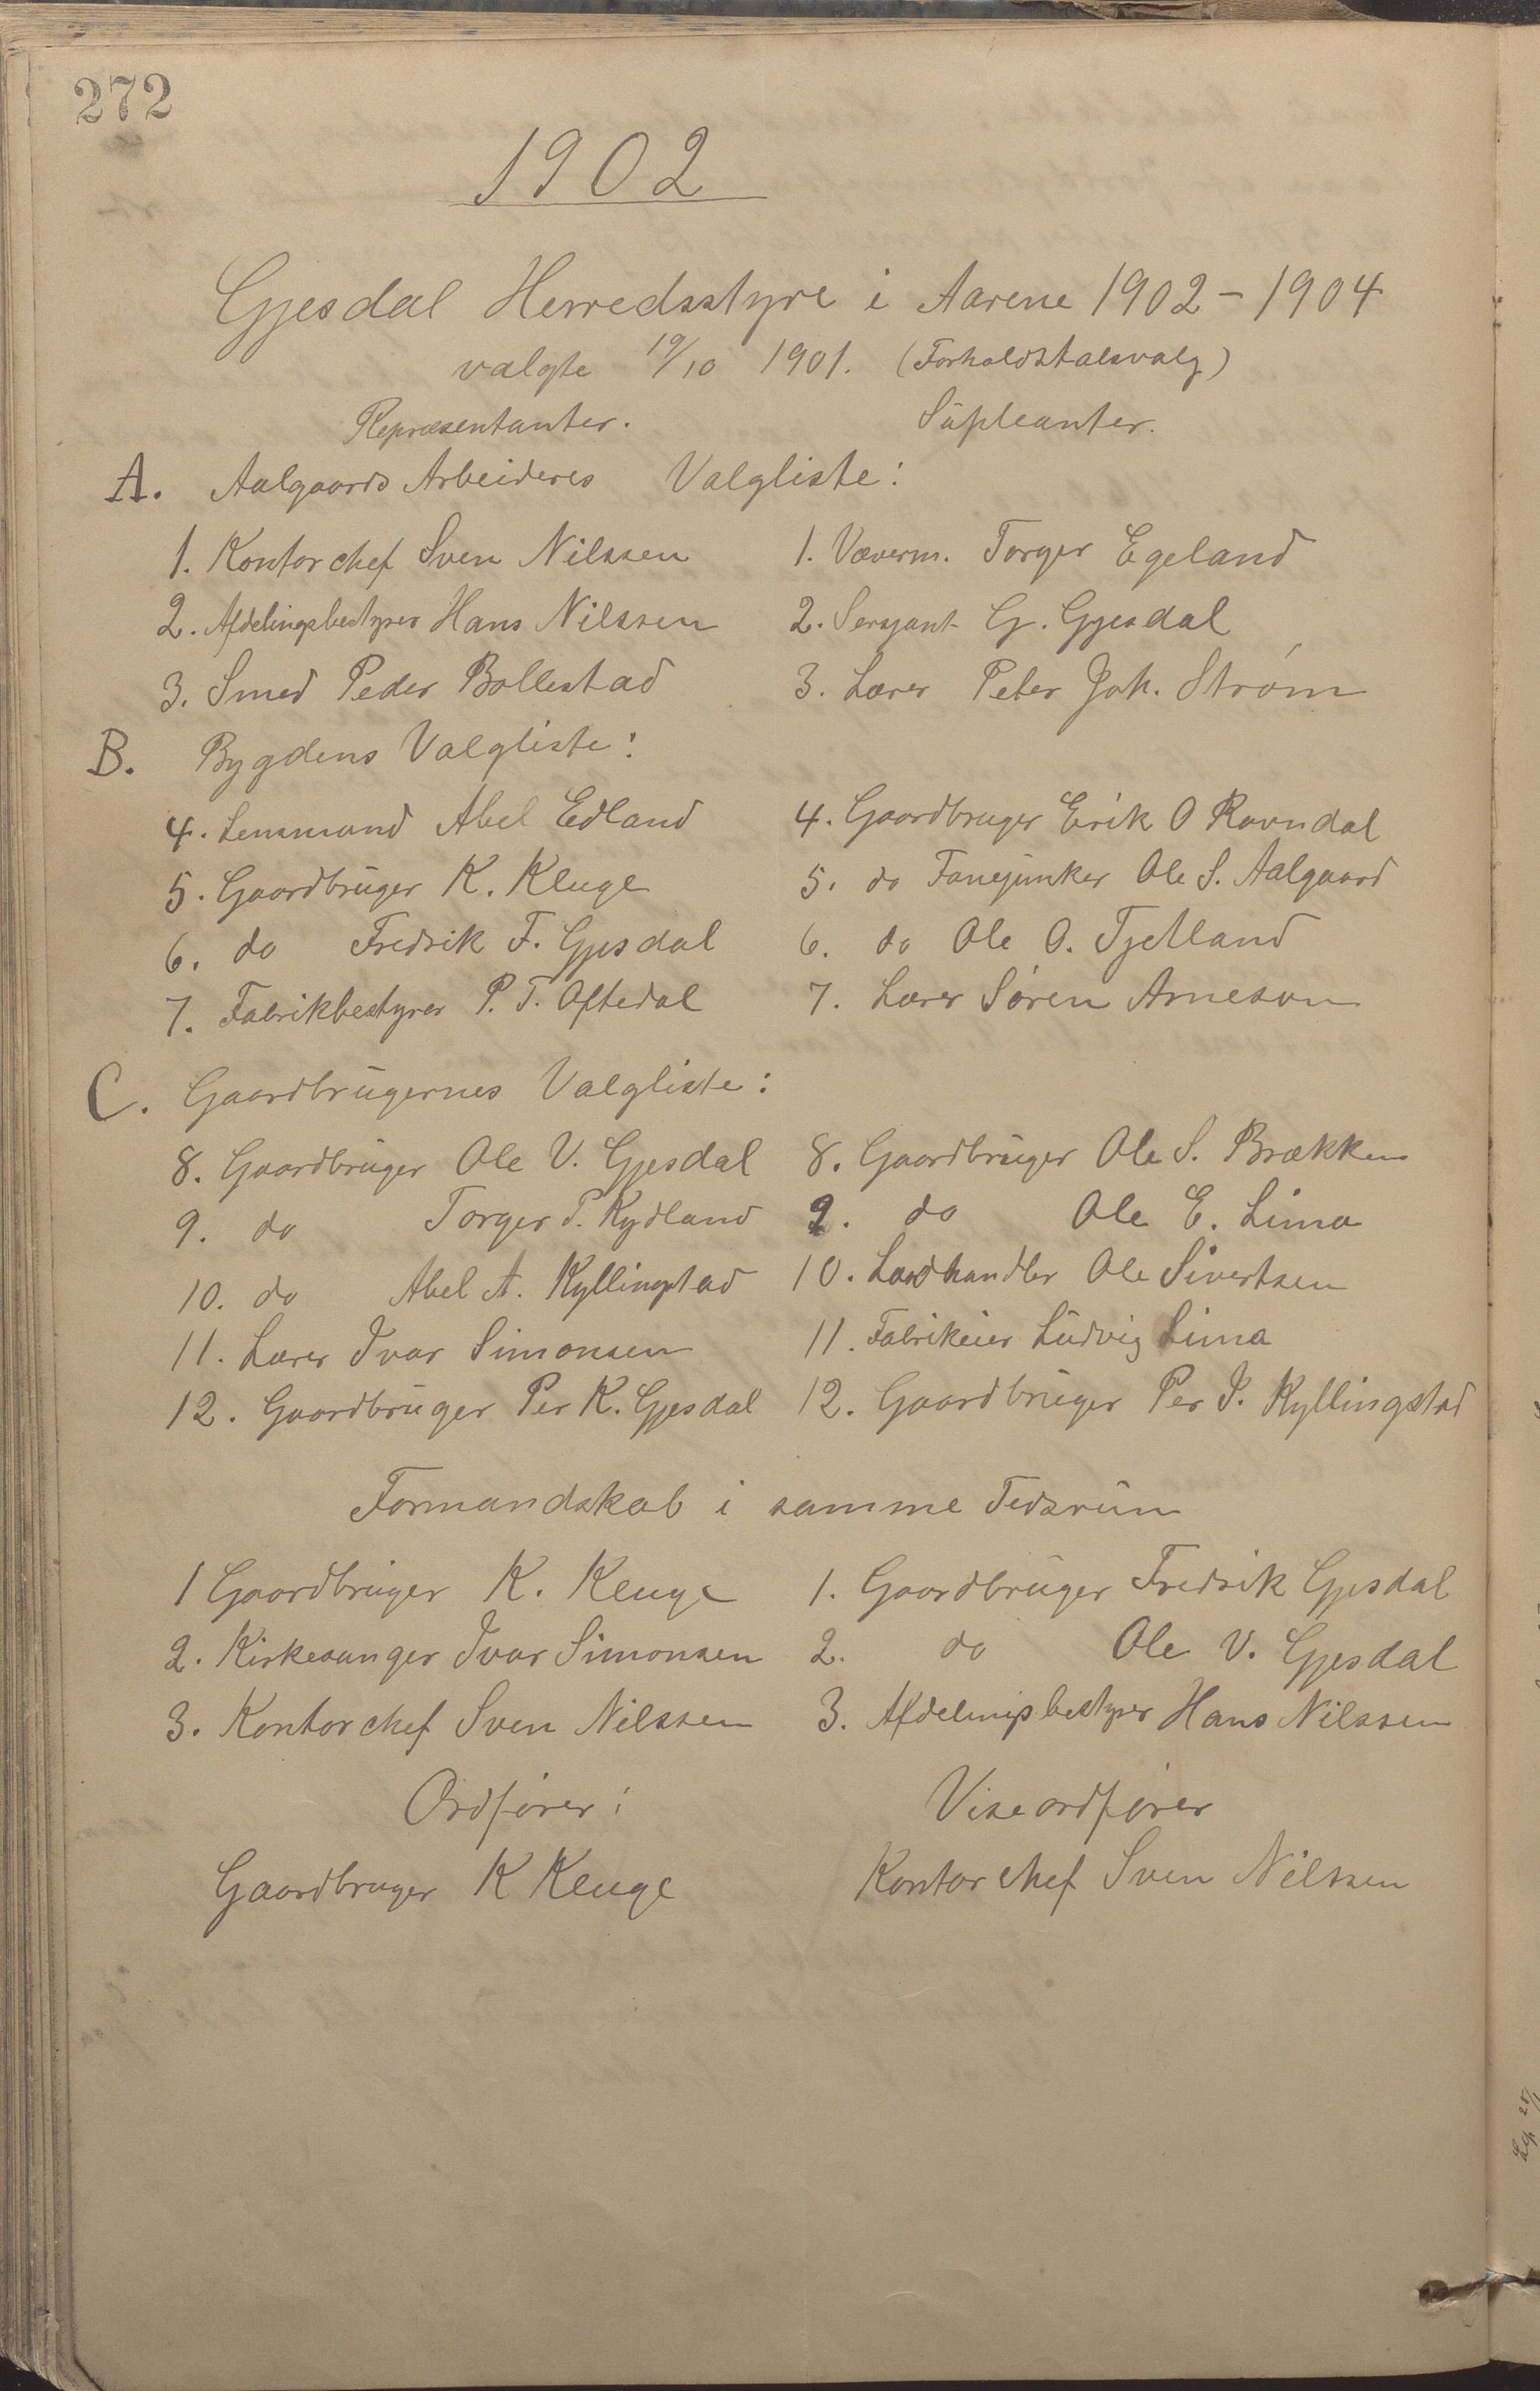 272
1902
Gjesdal Herredsstyre i Aarene 1902-1904
valgte 19/10 1901. (Forholdstalsvalg)
Repræsentanter. Supleanter.
A. Aalgaards Arbeideres Valgliste:
1. Kontorchef Sven Nilssen 1. Væverm. Torger Egeland
2. Afdelingsbestyrer Hans Nilssen 2. Sersjant G. Gjesdal
3. Smed Peder Bollestad 3. Lærer Peter Joh. Strøm
B. Bygdens Valgliste:
4. Lensmand Abel Edland 4. Gaardbruger Erik O Ravndal
5. Gaardbruger K. Kluge 5. do Fanejunker Ole S. Aalgaard
6. do Fredrik F. Gjesdal 6. do Ole O. Tjetland
7. Fabrikbestyrer P. T. Oftedal 7. Lærer Søren Arneson
C. Gaardbrugernes Valgliste:
8. Gaardbruger Ole V. Gjesdal 8. Gaardbruger Ole S. Brækken
9. do Torger T. Kydland 9. do Ole E. Lima
10. do Abel A. Kyllingstad 10. Landhandler Ole Sivertsen
11. Lærer Ivar Simonsen 11. Fabrikeier Ludvig Lima
12. Gaardbruger Per K. Gjesdal 12. Gaardbruger Per I. Kyllingstad
Formandskab i samme Tidsrum
1 Gaardbruger K. Kluge 1. Gaardbruger Fredrik Gjesdal
2. Kirkesanger Ivar Simonsen 2. do Ole V. Gjesdal
3. Kontorchef Sven Nilssen 3. Afdelingsbestyrer Hans Nilssen
Ordfører: Viseordfører
Gaardbruger K Kluge Kontorchef Sven Nilssen